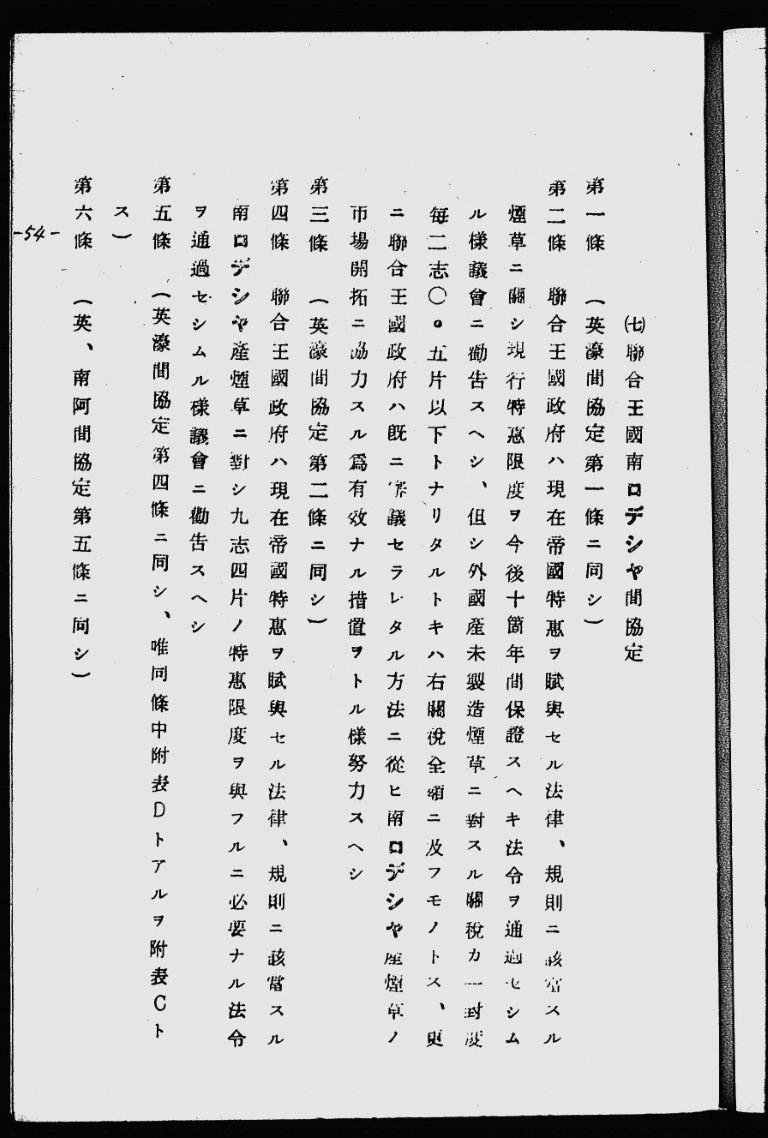 ㈦聯合王國南ロデシヤ間協定
第一條 (英濠間協定第一條ニ同シ)
第二條 聯合王國政府ハ現在帝國特惠ヲ賦與セル法律、規則ニ該當スル
煙草ニ關シ現行特惠限度ヲ今後十箇年間保證スヘキ法令ヲ通過セシム
ル樣議會ニ勸告スヘシ、但シ外國産未製造煙草ニ對スル關稅カ一封度
每二志〇。五片以下トナリタルトキハ右關稅全額ニ及フモノトス、更
ニ聯合王國政府ハ既ニ審議セラレタル方法ニ從ヒ南ロデシヤ産煙草ノ
市場開拓ニ協力スル爲有效ナル措置ヲトル樣努力スヘシ
第三條 (英濠間協定第二條ニ同シ)
第四條 聯合王國政府ハ現在帝國特惠ヲ賦與セル法律、規則ニ該當スル
南ロデシヤ産煙草ニ對シ九志四片ノ特惠限度ヲ與フルニ必要ナル法令
ヲ通過セシムル樣議會ニ勸告スヘシ
第五條 (英濠間協定第四條ニ同シ、唯同條中附表Dトアルヲ附表Cト
ス)
第六條 (英、南阿間協定第五條ニ同シ)
-54-